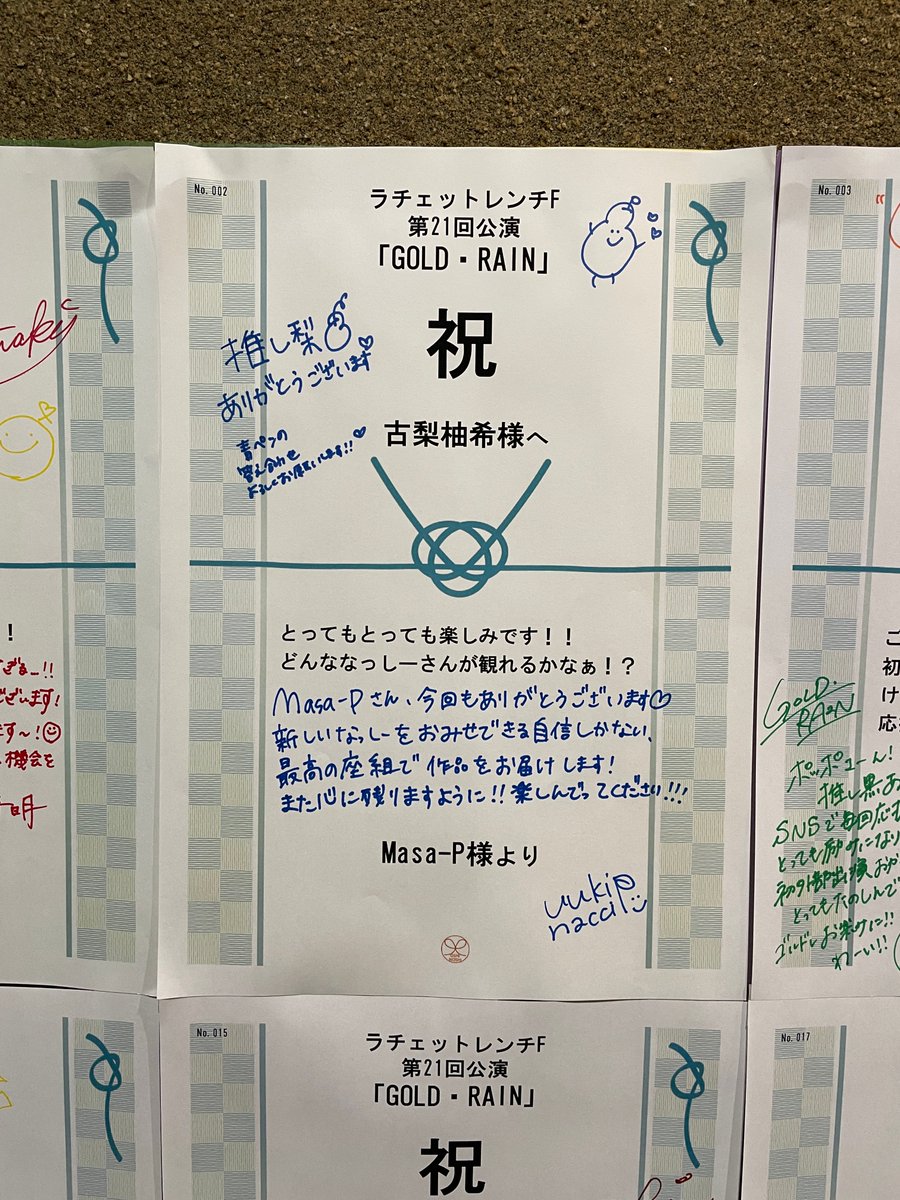 No. 002
ラチェットレンチF
第21回公演
「GOLD・RAIN」
祝
推し梨
ありがとうございます
青ペンの
答え合わせ
よろしくお願いします!!
古梨柚希様へ
とってもとっても楽しみです!!
どんななっしーさんが観れるかなぁ!?
Masa-Pさん、今回もありがとうございます♡
新しいなっしーをおみせできる自信しかない、
最高の座組で作品をお届けします!
また心に残りますように!!楽しんでってください!!!
Masa-P様より
yuki
nacci
!
ございます!
機会を
No. 003
GOLD・
RAIN
ポッポューん!
推し黒あ
SNSで毎回応む
とっても励みになり
初外部出演おめ
とってもたのしんで
ゴルドレお楽しみに!!
わーい!!
ご
初
け
応
No. 015
ラチェットレンチF
第21回公演
「GOLD・RAIN」
祝
No. 017